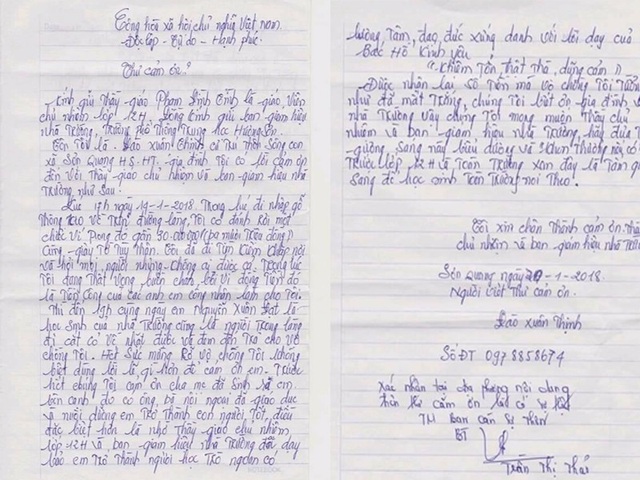 Cộng hòa xã hội chủ nghĩa Việt Nam
Độc lập - Tự do - Hạnh phúc
Thư cảm ơn
Kính gửi Thầy giáo Phạm Đình Tình là giáo viên
chủ nhiệm lớp 12H. Đồng kính gửi ban giám hiệu
nhà Trường, Trường phổ Thông Trung học Hương Sơn.
Tên Tôi là Đào Xuân Thịnh cư Trú Thôn Sông Con
xã Sơn Quang HS.HT. gia đình Tôi có lời cảm ơn
đến với Thầy giáo chủ nhiệm và ban giám hiệu nhà
Trường như sau:
Lúc 17h ngày 19-1-2018. Trong lúc đi nhập gỗ
Tôi có đánh rơi một
chiếc Ví Trong đó gần 30.000.000đ (ba mươi Triệu đồng)
Cùng giấy Tờ Tùy Thân. Tôi đã đi Tìm kiếm khắp nơi
và hỏi mọi người nhưng không ai được cả. Trong lúc
Tôi đang Thất Vọng buồn chán bởi Vì đồng Tiền đó
là Tiền công của các anh em công nhân làm cho Tôi.
Thì đến 19h cùng ngày em Nguyễn Xuân Đạt là
học sinh của nhà Trường cũng là người Trong làng
đi cắt cỏ Về nhặt được và đem đến Trả cho Vợ
chồng Tôi. Hết Sức mừng Rỡ Vợ chồng Tôi không
biết dùng lời lẽ gì hơn để cảm ơn em. Trước
hết chúng Tôi cảm ơn cha mẹ đã Sinh ra em
bên cạnh đó có ông, bà nội ngoại đã giáo dục
và nuôi dưỡng em Trở Thành con người Tốt, điều
đặc biệt hơn là nhờ Thầy giáo chủ nhiệm
lớp 12H và ban giám hiệu nhà Trường đã dạy
bảo em Trở Thành người học Trò ngoan có
lương Tâm, đạo đức xứng danh với lời dạy của
Bác Hồ Kính yêu
"Khiêm Tốn thật thà, dũng cảm"
Được nhận lại số Tiền mà vợ chồng Tôi Tưởng
như đã mất Trắng, chúng Tôi biết ơn gia đình
nhà Trường vậy chúng Tôi mong muốn Thầy chủ
nhiệm và ban giám hiệu nhà Trường, hãy đưa
gương sáng này biểu dương và khen Thưởng
Trước lớp 12H và Toàn Trường xem đây là Tấm gương
Sáng để học sinh Toàn Trường noi Theo.
Tôi xin chân Thành cảm ơn Thầy
chủ nhiệm và ban giám hiệu nhà Trường
Sơn Quang ngày 20-1-2018
Người viết Thư cảm ơn.
Đào Xuân Thịnh
Số ĐT 0978858674
Xác nhận tại địa phương nội dung
thư cảm ơn là có sự thật
TM Ban Cán Sự Thôn
BT
Trần Thị Thái